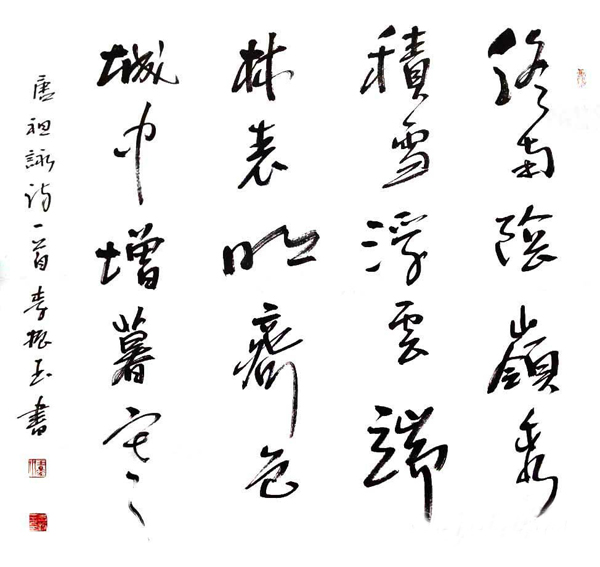 終南陰嶺秀
積雪浮雲端
林表明霽色
城中增暮寒
唐祖詠詩一首李振玉書